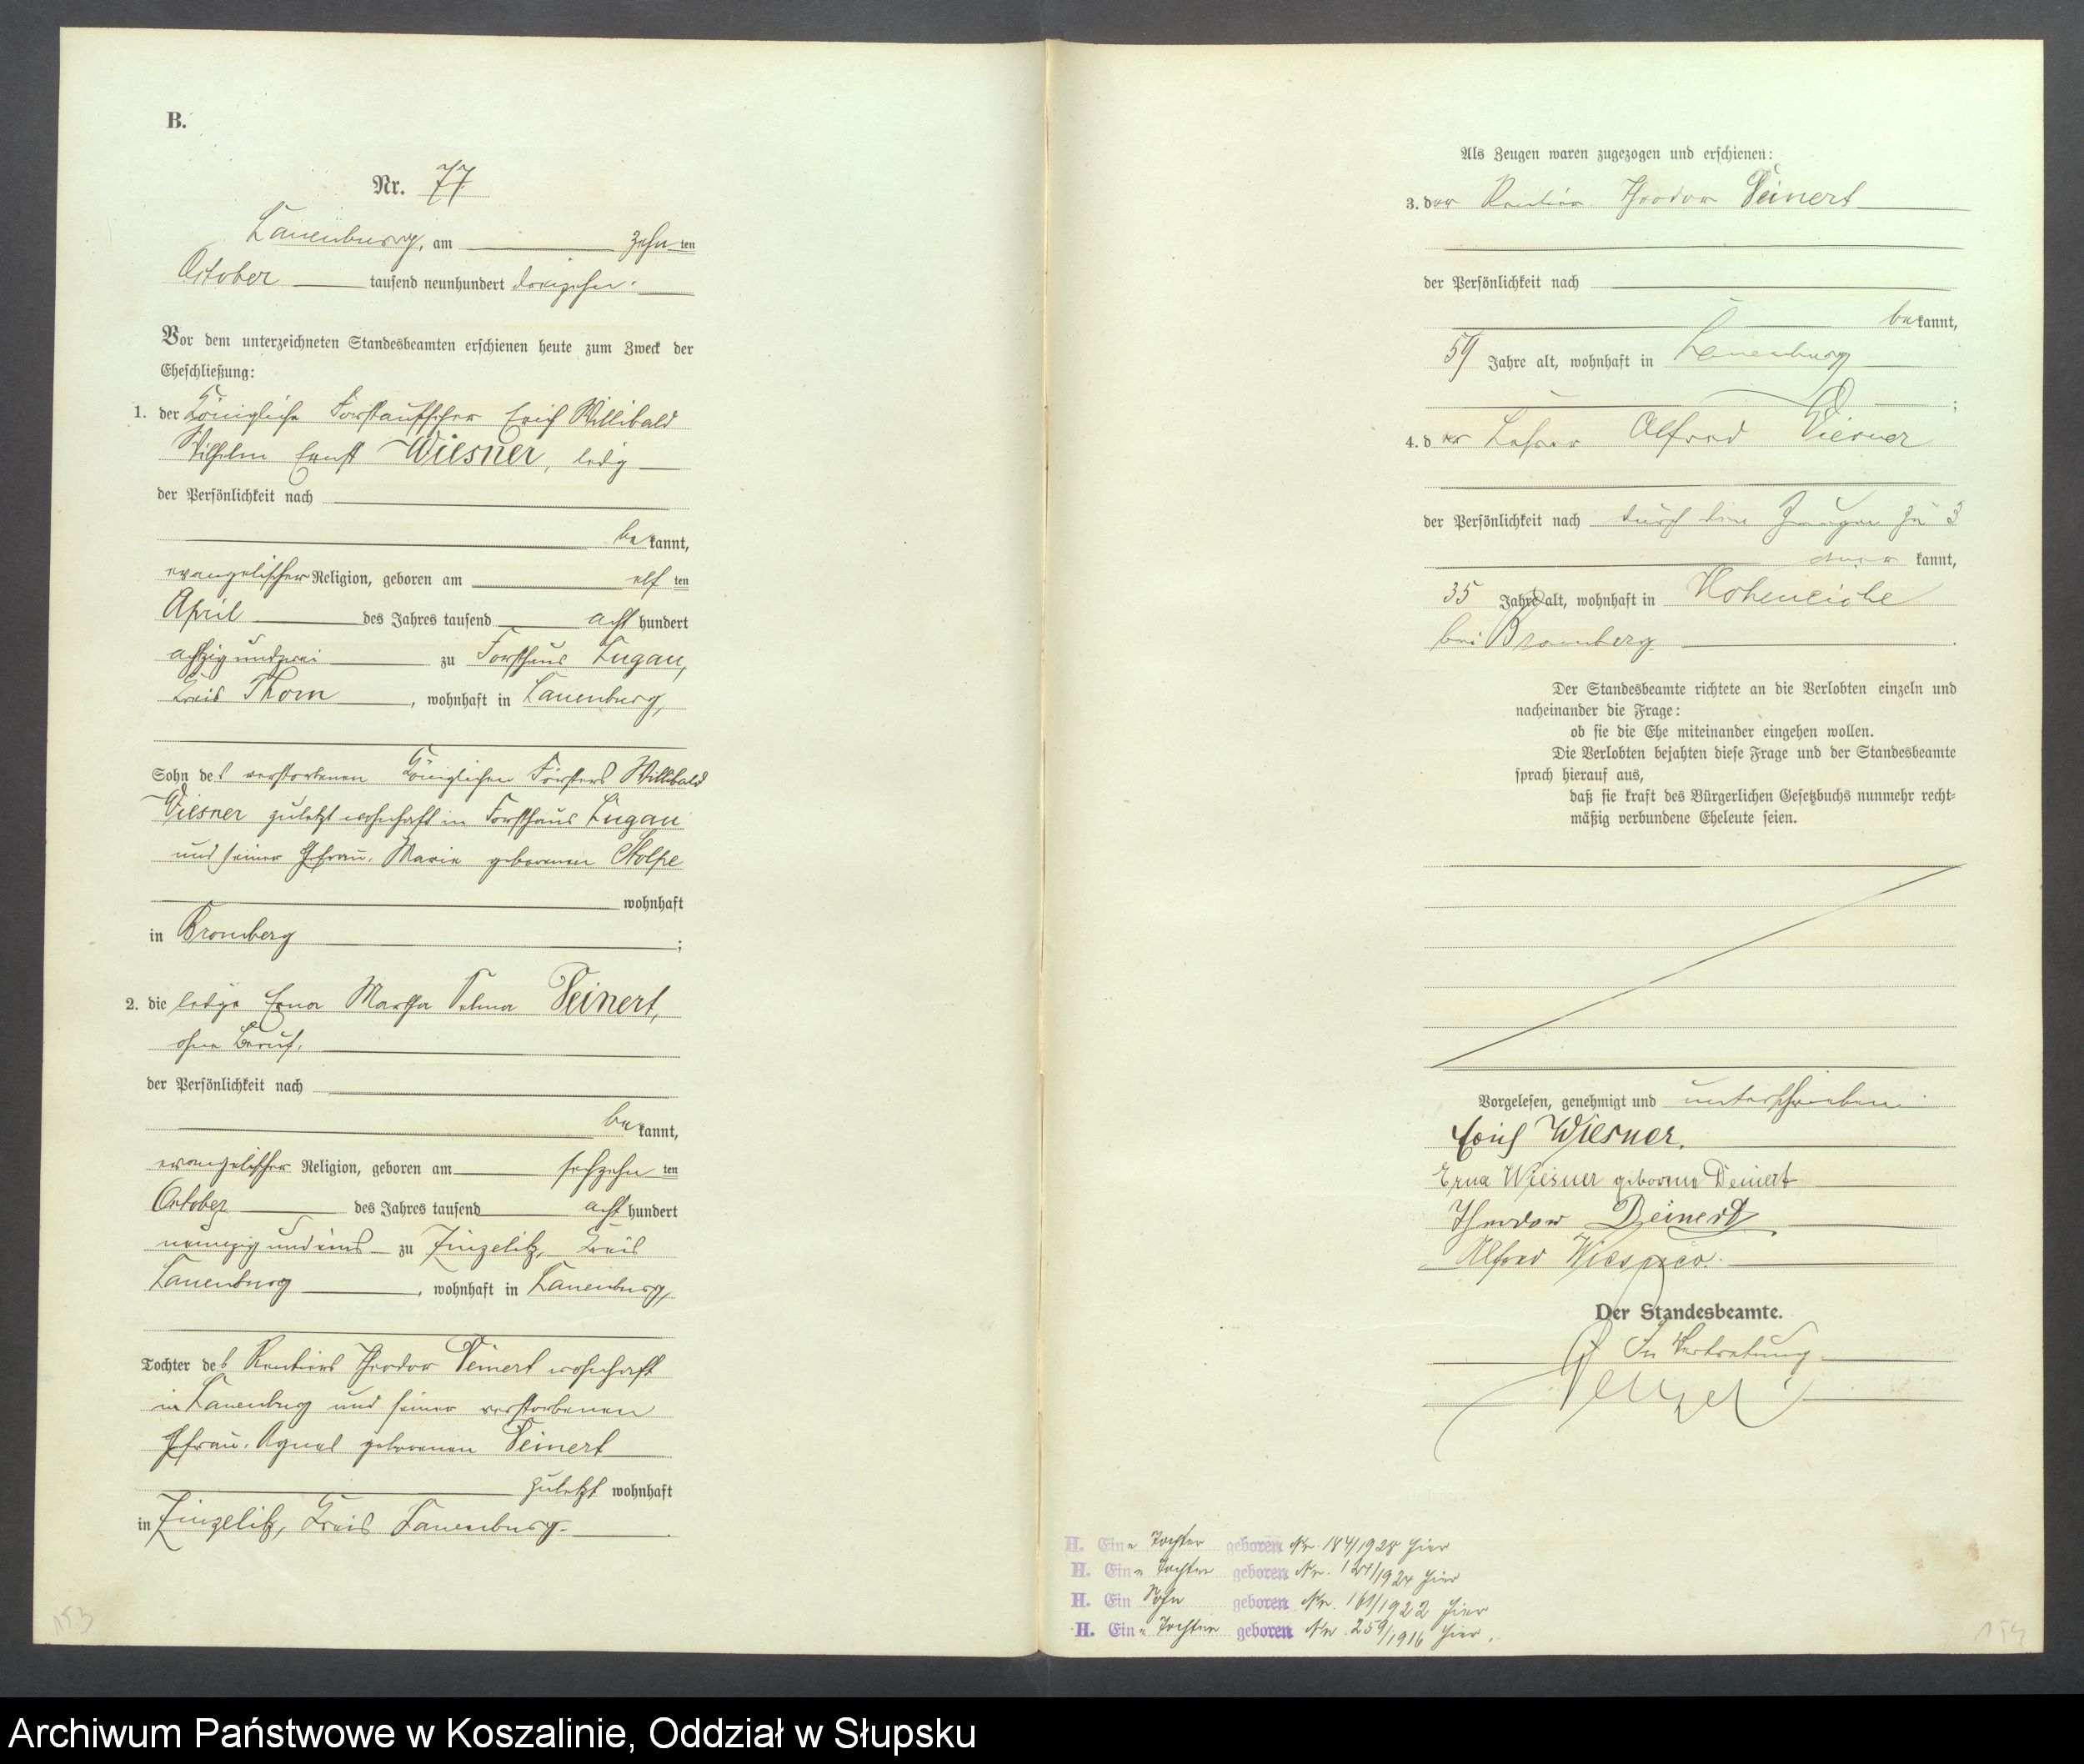 B.
Nr. 77
Lauenburg, am zehnten
October tausend neunhundert dreizehn.
Vor dem unterzeichneten Standesbeamten erschienen heute zum Zweck der
Eheschließung:
1. der Königliche Forstaufseher Erich Willibald
Wilhelm Ernst Wiesner, ledig
der Persönlichkeit nach
bekannt,
evangelischer Religion, geboren am elften
April des Jahres tausend achthundert
achtzig und zwei zu Forsthaus Lugau,
Kreis Thorn, wohnhaft in Lauenburg,
Sohn des verstorbenen Königlichen Försters Willibald
Wiesner zuletzt wohnhaft in Forsthaus Lugau
und seiner Ehefrau, Marie geborenen Stolpe
wohnhaft
in Bromberg;
2. die ledige Erna Martha Selma Deinert,
ohne Beruf,
der Persönlichkeit nach
bekannt,
evangelischer Religion, geboren am sechzehnten
October des Jahres tausend achthundert
neunzig und eins zu Zinzelitz, Kreis
Lauenburg, wohnhaft in Lauenburg,
Tochter des Rentiers Theodor Deinert wohnhaft
in Lauenburg und seiner verstorbenen
Ehefrau, Agnes geborenen Deinert
zuletzt wohnhaft
in Zinzelitz, Kreis Lauenburg.
Als Zeugen waren zugezogen und erschienen:
3. der Rentier Theodor Deinert
der Persönlichkeit nach
bekannt,
59 Jahre alt, wohnhaft in Lauenburg
;
4. der Lehrer Alfred Wiesner
der Persönlichkeit nach durch den Zeugen zu 3
anerkannt,
35 Jahre alt, wohnhaft in Hoheneiche
bei Bromberg.
Der Standesbeamte richtete an die Verlobten einzeln und
nacheinander die Frage:
ob sie die Ehe miteinander eingehen wollen.
Die Verlobten bejahten diese Frage und der Standesbeamte
sprach hierauf aus,
daß sie kraft des Bürgerlichen Gesetzbuchs nunmehr recht-
mäßig verbundene Eheleute seien.
Vorgelesen, genehmigt und unterschrieben
Erich Wiesner.
Erna Wiesner geborene Deinert
Theodor Deinert
Alfred Wiesner.
Der Standesbeamte.
In Vertretung
H. Eine Tochter geboren Nr. 184/1928 hier
H. Eine Tochter geboren Nr. 124/1924 hier
H. Ein Sohn geboren Nr. 161/1922 hier
H. Eine Tochter geboren Nr. 259/1916 hier.
153
154
Archiwum Państwowe w Koszalinie, Oddział w Słupsku